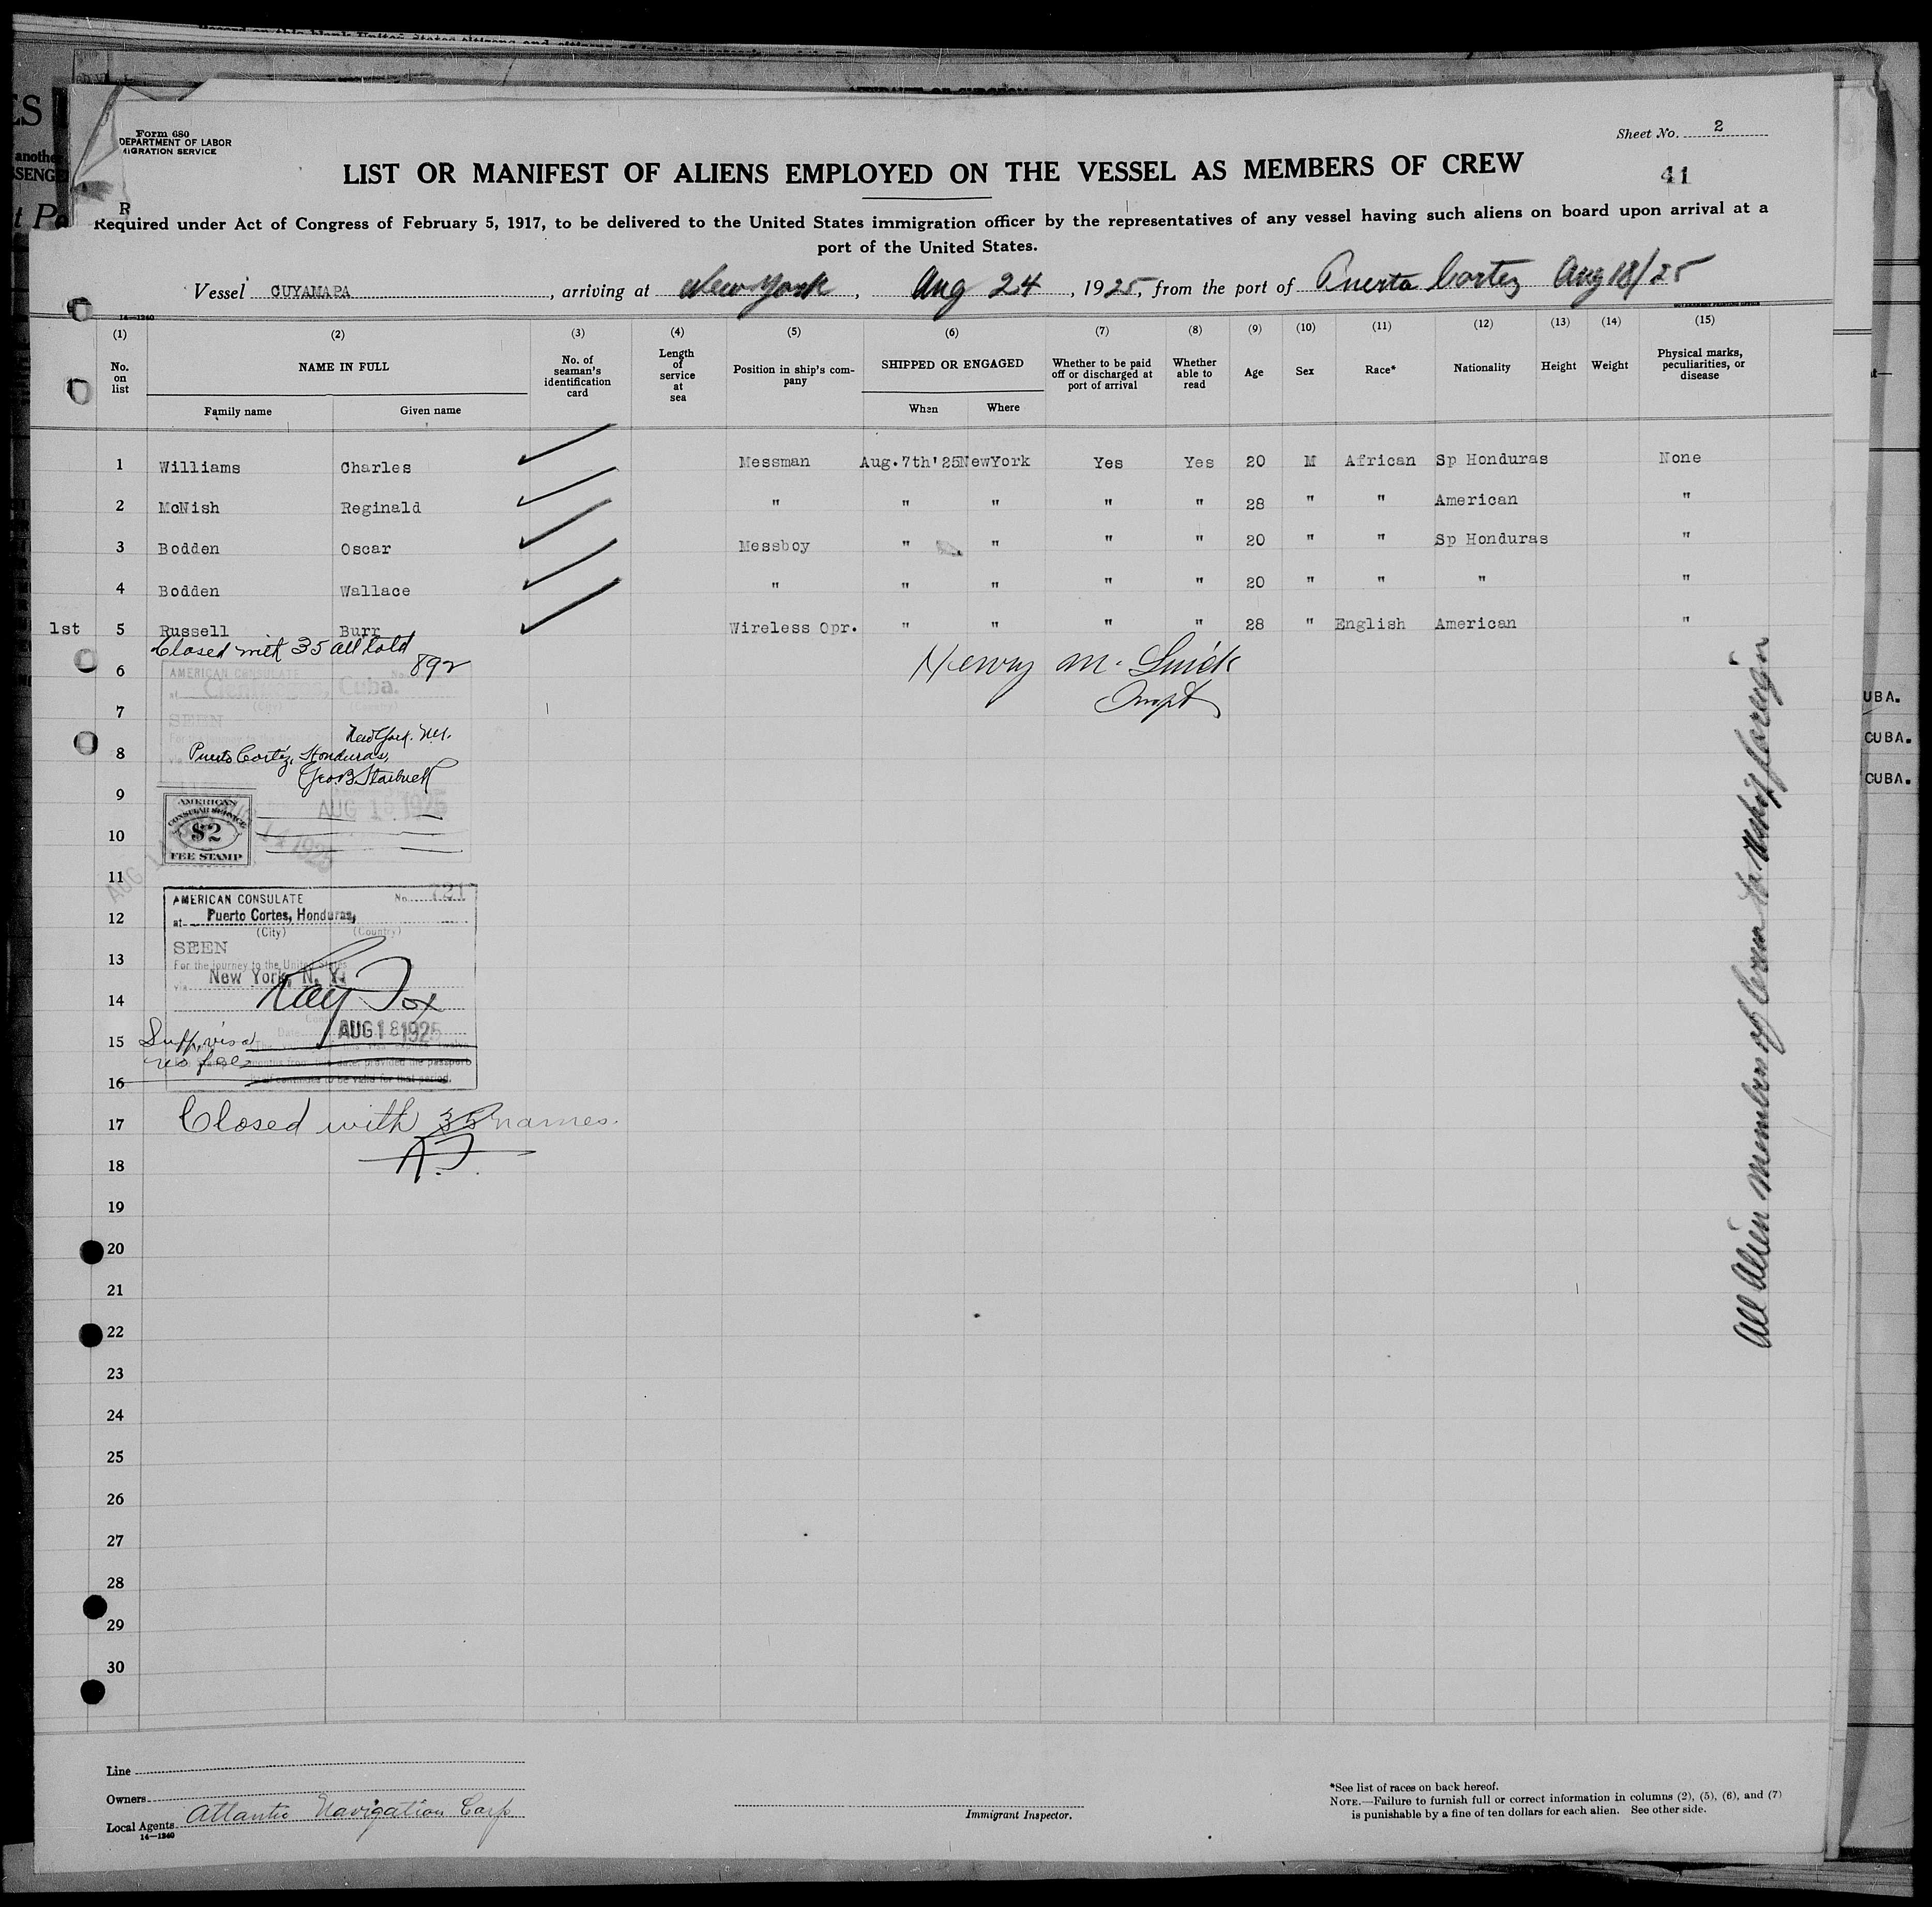 ES
another
SSENG
t Po
Form 680
DEPARTMENT OF LABOR
MIGRATION SERVICE
Sheet No. 2
LIST OR MANIFEST OF ALIENS EMPLOYED ON THE VESSEL AS MEMBERS OF CREW
41
R
Required under Act of Congress of February 5, 1917, to be delivered to the United States immigration officer by the representatives of any vessel having such aliens on board upon arrival at a
port of the United States.
Vessel CUYAMAPA, arriving at New York, Aug 24, 1925, from the port of Puerta Cortez Aug 18/25
14—1240
GOVERNMENT PRINTING OFFICE
(1) (2) (3) (4) (5) (6) (7) (8) (9) (10) (11) (12) (13) (14) (15)
No. on list
NAME IN FULL
Family name
Given name
No. of seaman's identification card
Length of service at sea
Position in ship's company
SHIPPED OR ENGAGED
When
Where
Whether to be paid off or discharged at port of arrival
Whether able to read
Age
Sex
Race*
Nationality
Height
Weight
Physical marks, peculiarities, or disease
1 Williams Charles Messman Aug. 7th'25 NewYork Yes Yes 20 M African Sp Honduras None
2 McNish Reginald " " " " " 28 " " American "
3 Bodden Oscar Messboy " " " " 20 " " Sp Honduras "
4 Bodden Wallace " " " " " 20 " " " "
1st 5 Russell Burr Wireless Opr. " " " " 28 " English American "
Closed with 35 all told
6
892
AMERICAN CONSULATE
at Cienfuegos, Cuba.
(City) (Country)
Henry M.
Inspt
7
SEEN
For the journey to the United States
New York. N.Y.
8
Puerto Cortéz, Honduras,
Geo B. Starbuck
9
AUG 15 1925
10
AMERICAN
CONSULAR SERVICE
$2
FEE STAMP
AUG 14 1925
11
12
AMERICAN CONSULATE No. 721
at Puerto Cortes, Honduras,
(City) (Country)
13
SEEN
For the journey to the United States
via New York, N. Y.
14
Ray Fox
15
Date AUG 18 1925
Supp, visa
no fee
16
months from this date, provided the passport
continues to be valid for that period.
17
Closed with 35 names.
R.F.
18
19
20
21
22
23
24
25
26
27
28
29
30
UBA.
CUBA.
CUBA.
Line
Owners
Local Agents Atlantic Navigation Corp
14—1240
Immigrant Inspector.
*See list of races on back hereof.
NOTE.—Failure to furnish full or correct information in columns (2), (5), (6), and (7)
is punishable by a fine of ten dollars for each alien. See other side.
All Alien members of Crew to reship foreign